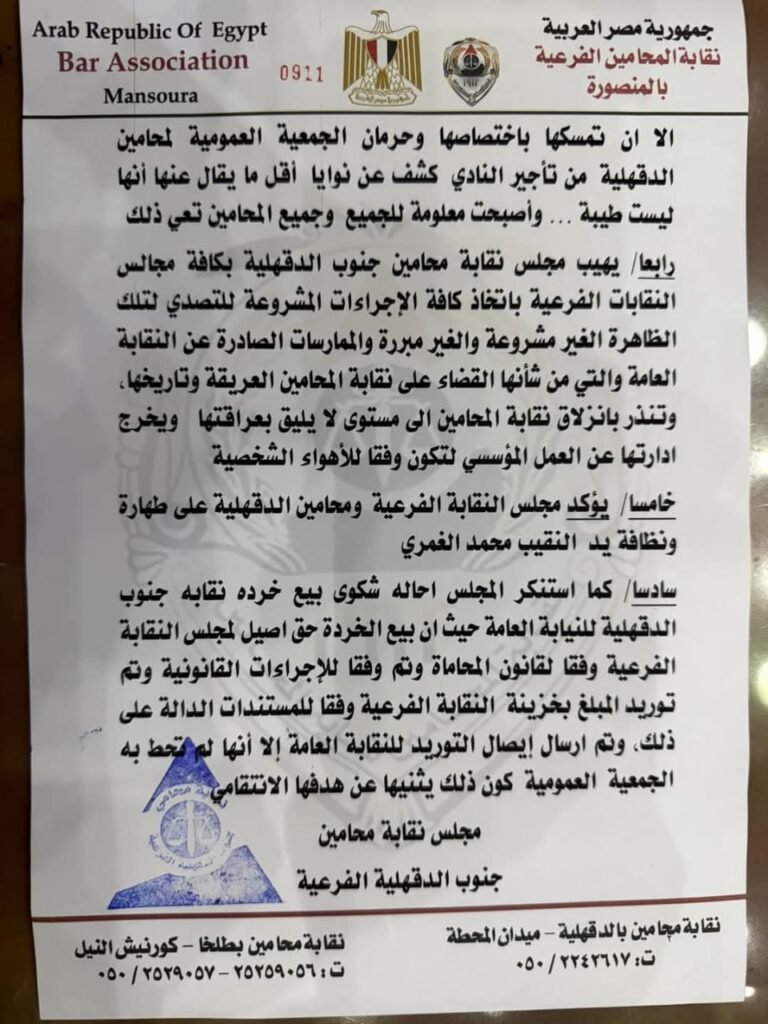 Arab Republic Of Egypt
Bar Association
Mansoura
0911
جمهورية مصر العربية
نقابة المحامين الفرعية
بالمنصورة
الا ان تمسكها باختصاصها وحرمان الجمعية العمومية لمحامين
الدقهلية من تأجير النادي كشف عن نوايا أقل ما يقال عنها أنها
ليست طيبة ... وأصبحت معلومة للجميع وجميع المحامين تعي ذلك
رابعا/ يهيب مجلس نقابة محامين جنوب الدقهلية بكافة مجالس
النقابات الفرعية باتخاذ كافة الإجراءات المشروعة للتصدي لتلك
الظاهرة الغير مشروعة والغير مبررة والممارسات الصادرة عن النقابة
العامة والتي من شأنها القضاء على نقابة المحامين العريقة وتاريخها،
وتنذر بانزلاق نقابة المحامين الى مستوى لا يليق بعراقتها ويخرج
ادارتها عن العمل المؤسسي لتكون وفقا للأهواء الشخصية
خامسا/ يؤكد مجلس النقابة الفرعية ومحامين الدقهلية على طهارة
ونظافة يد النقيب محمد الغمري
سادسا/ كما استنكر المجلس احاله شكوى بيع خرده نقابه جنوب
الدقهلية للنيابة العامة حيث ان بيع الخردة حق اصيل لمجلس النقابة
الفرعية وفقا لقانون المحاماة وتم وفقا للإجراءات القانونية وتم
توريد المبلغ بخزينة النقابة الفرعية وفقا للمستندات الدالة على
ذلك، وتم ارسال إيصال التوريد للنقابة العامة إلا أنها لم تحط به
الجمعية العمومية كون ذلك يثنيها عن هدفها الانتقامي
مجلس نقابة محامين
جنوب الدقهلية الفرعية
نقابة محامي
جنوب الدقهلية الفرعية
نقابة محامين بالدقهلية - ميدان المحطة
ت: ٢٢٤٢٦١٧ / ٠٥٠
نقابة محامين بطلخا - كورنيش النيل
ت: ٢٥٢٥٩٠٥٦ - ٢٥٢٩٠٥٧ / ٠٥٠